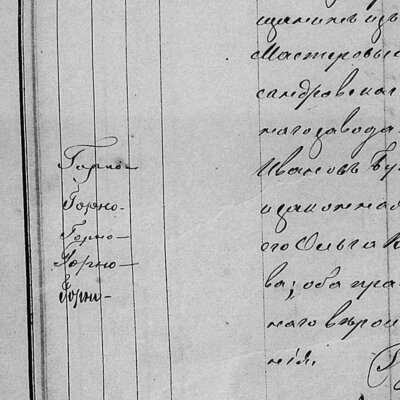 щанинъ изъ
Мастеровы
сандровског
наго завода
Горно- Ивановъ Бу
Горно- и законная
Горно- его Ольга
Горно- ва; оба пра
Горно- наго вѣрои
нія.